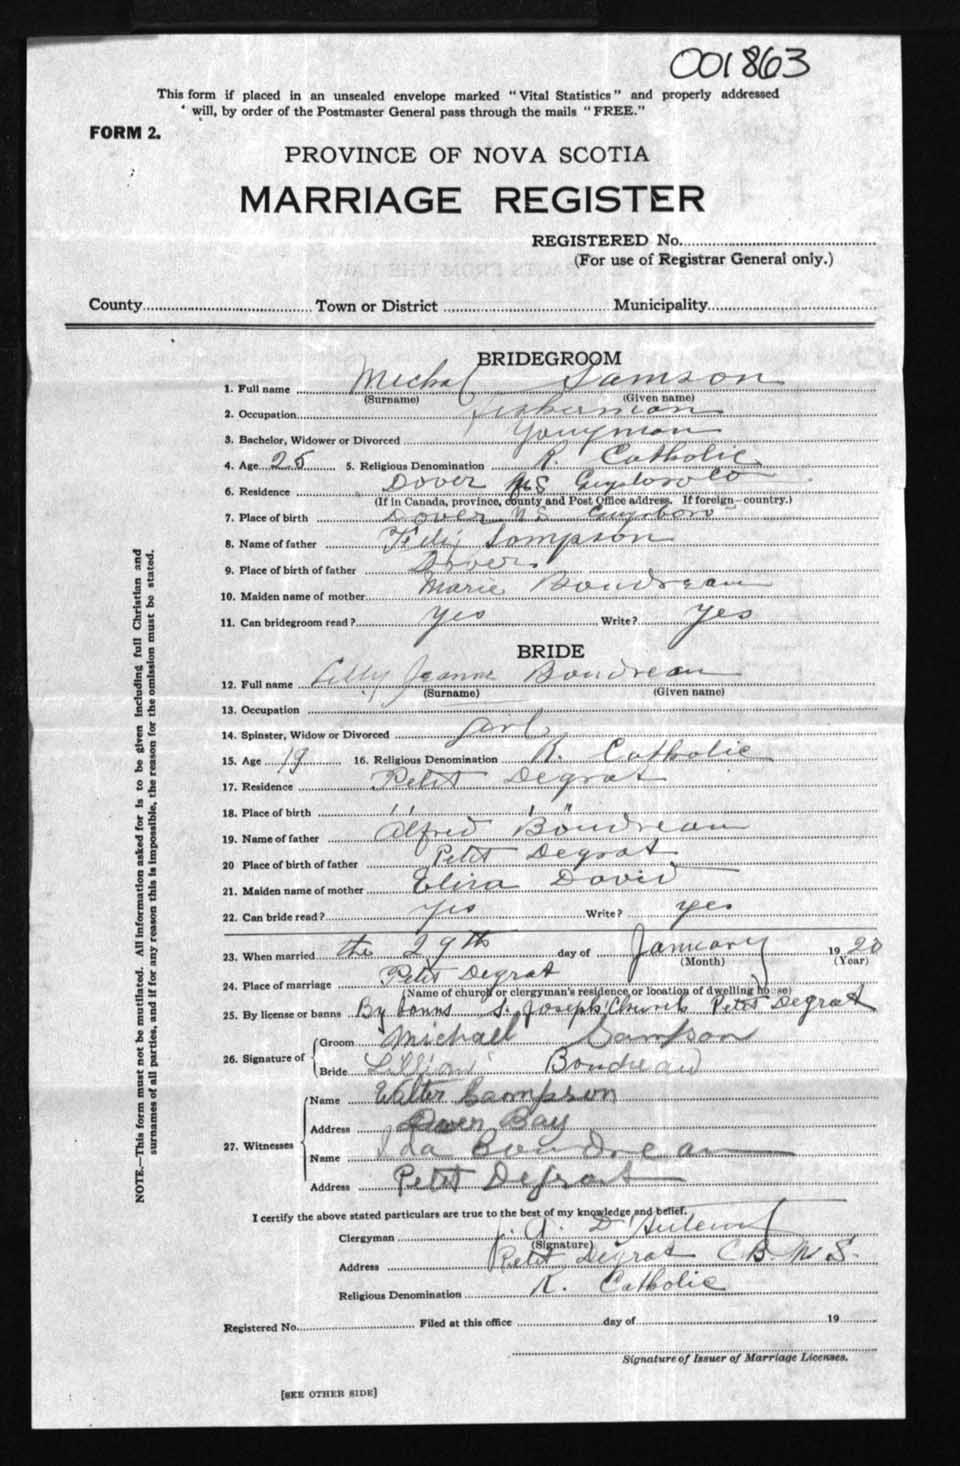 001863
This form if placed in an unsealed envelope marked "Vital Statistics" and properly addressed
will, by order of the Postmaster General pass through the mails "FREE."
FORM 2.
PROVINCE OF NOVA SCOTIA
MARRIAGE REGISTER
REGISTERED No.
(For use of Registrar General only.)
County Town or District Municipality
BRIDEGROOM
1. Full name Michal Samson
(Surname) (Given name)
2. Occupation fisherman
3. Bachelor, Widower or Divorced Youngman
4. Age 25 5. Religious Denomination R. Catholic
6. Residence Dover NS Guysboro Co
(If in Canada, province, county and Post Office address. If foreign—country.)
7. Place of birth Dover NS Guysboro
8. Name of father Sampson
9. Place of birth of father Dover
10. Maiden name of mother Marie Boudreau
11. Can bridegroom read? yes Write? yes
BRIDE
12. Full name Lilly Jeanne Boudreau
(Surname) (Given name)
13. Occupation
14. Spinster, Widow or Divorced Girl
15. Age 19 16. Religious Denomination R. Catholic
17. Residence Petit Degrat
18. Place of birth " " "
19. Name of father Alfred Boudreau
20 Place of birth of father Petit Degrat
21. Maiden name of mother Eliza David
22. Can bride read? yes Write? yes
23. When married the 29th day of January 1920
(Month) (Year)
24. Place of marriage Petit Degrat
(Name of church or clergyman's residence or location of dwelling house)
25. By license or banns By banns S. Joseph Church Petit Degrat
26. Signature of
Groom Michael Sampson
Bride Lillian Boudreau
27. Witnesses
Name Walter Sampson
Address Dover Bay
Name Ida Boudreau
Address Petit Degrat
I certify the above stated particulars are true to the best of my knowledge and belief.
Clergyman A. D
(Signature)
Address Petit Degrat C. B. N. S.
Religious Denomination R. Catholic
Registered No. Filed at this office day of 19
Signature of Issuer of Marriage Licenses.
[SEE OTHER SIDE]
NOTE.—This form must not be mutilated. All information asked for is to be given including full Christian and
surnames of all parties, and if for any reason this is impossible, the reason for the omission must be stated.